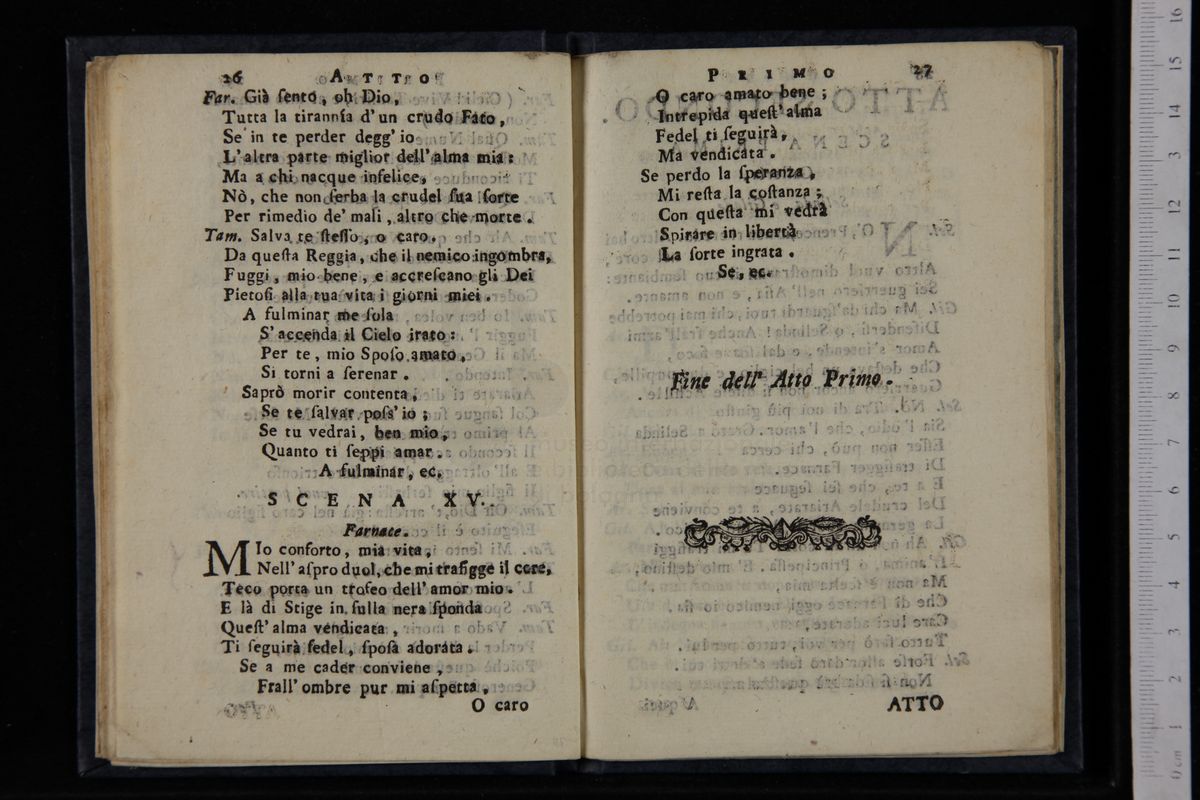 26 ATTO
Far. Già ſento, oh Dio,
Tutta la tirannía d'un crudo Fato,
Se in te perder degg' io
L'altra parte miglior dell'alma mia:
Ma a chi nacque infelice,
Nò, che non ſerba la crudel ſua ſorte
Per rimedio de' mali, altro che morte.
Tam. Salva te ſteſſo, o caro,
Da queſta Reggia, che il nemico ingombra,
Fuggi, mio bene, e accreſcano gli Dei
Pietoſi alla tua vita i giorni miei.
A fulminar me ſola
S'accenda il Cielo irato:
Per te, mio Spoſo amato,
Si torni a ſerenar.
Saprò morir contenta,
Se te ſalvar poſs' io;
Se tu vedrai, ben mio,
Quanto ti ſeppi amar.
A fulminar, ec.
SCENA XV.
Farnace.
MIo conforto, mia vita,
Nell' aſpro duol, che mi trafigge il core,
Teco porta un trofeo dell' amor mio.
E là di Stige in ſulla nera ſponda
Queſt' alma vendicata,
Ti ſeguirà fedel, ſpoſa adorata.
Se a me cader conviene,
Frall' ombre pur mi aſpetta,
O caro
PRIMO 27
O caro amato bene;
Intrepida queſt' alma
Fedel ti ſeguirà,
Ma vendicata.
Se perdo la ſperanza,
Mi reſta la coſtanza;
Con queſta mi vedrà
Spirare in libertà
La ſorte ingrata.
Se, ec.
Fine dell' Atto Primo.
ATTO
16
15
14
13
12
11
10
9
8
7
6
5
4
3
2
1
0 cm